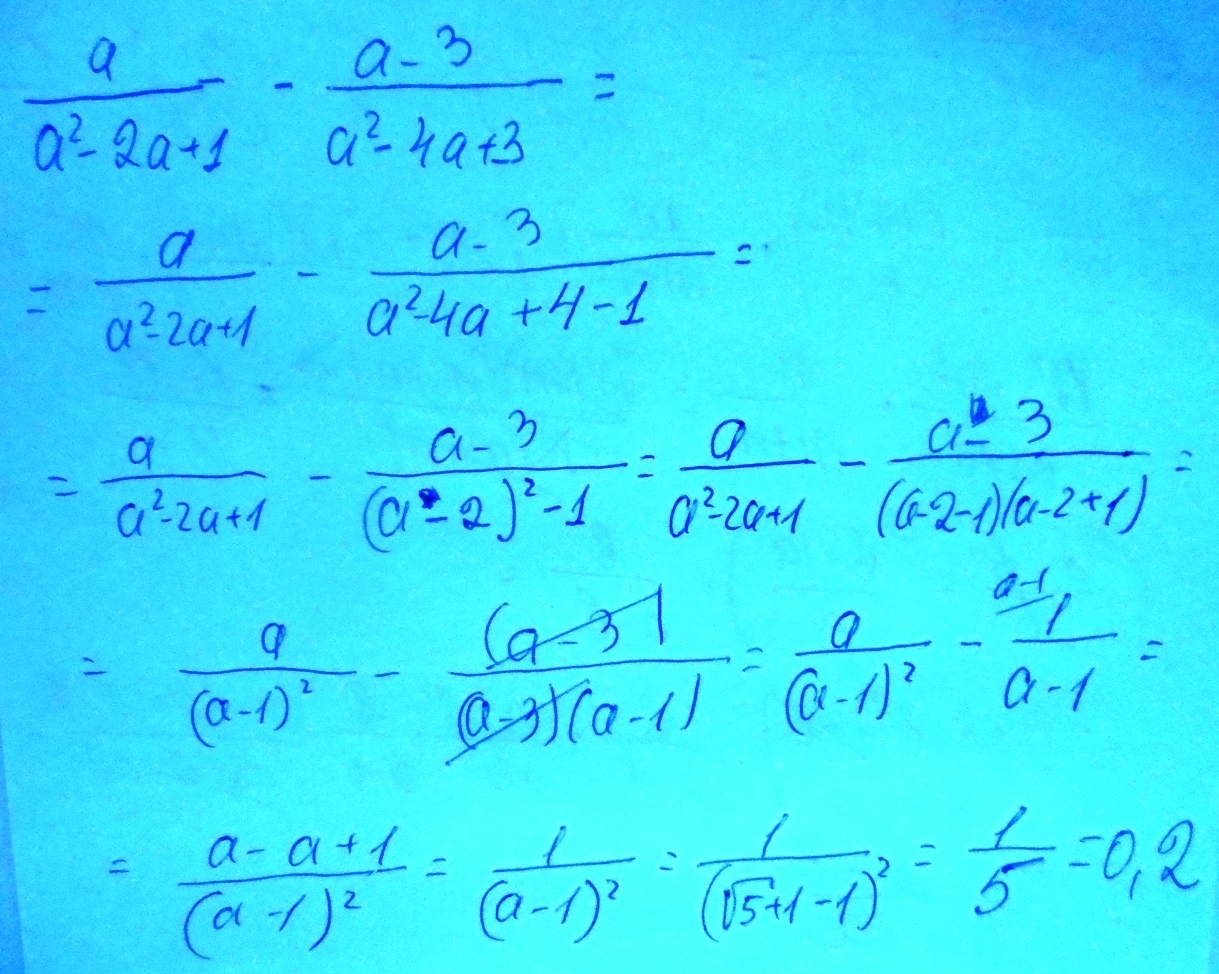 a/(a²-2a+1) - (a-3)/(a²-4a+3) =
= a/(a²-2a+1) - (a-3)/(a²-4a+4-1) =
= a/(a²-2a+1) - (a-3)/((a-2)²-1) = a/(a²-2a+1) - (a-3)/((a-2-1)(a-2+1)) =
= a/(a-1)² - (a-3)/((a-3)(a-1)) = a/(a-1)² - 1/(a-1) a-1 =
= (a-a+1)/(a-1)² = 1/(a-1)² = 1/(√5+1-1)² = 1/5 = 0,2